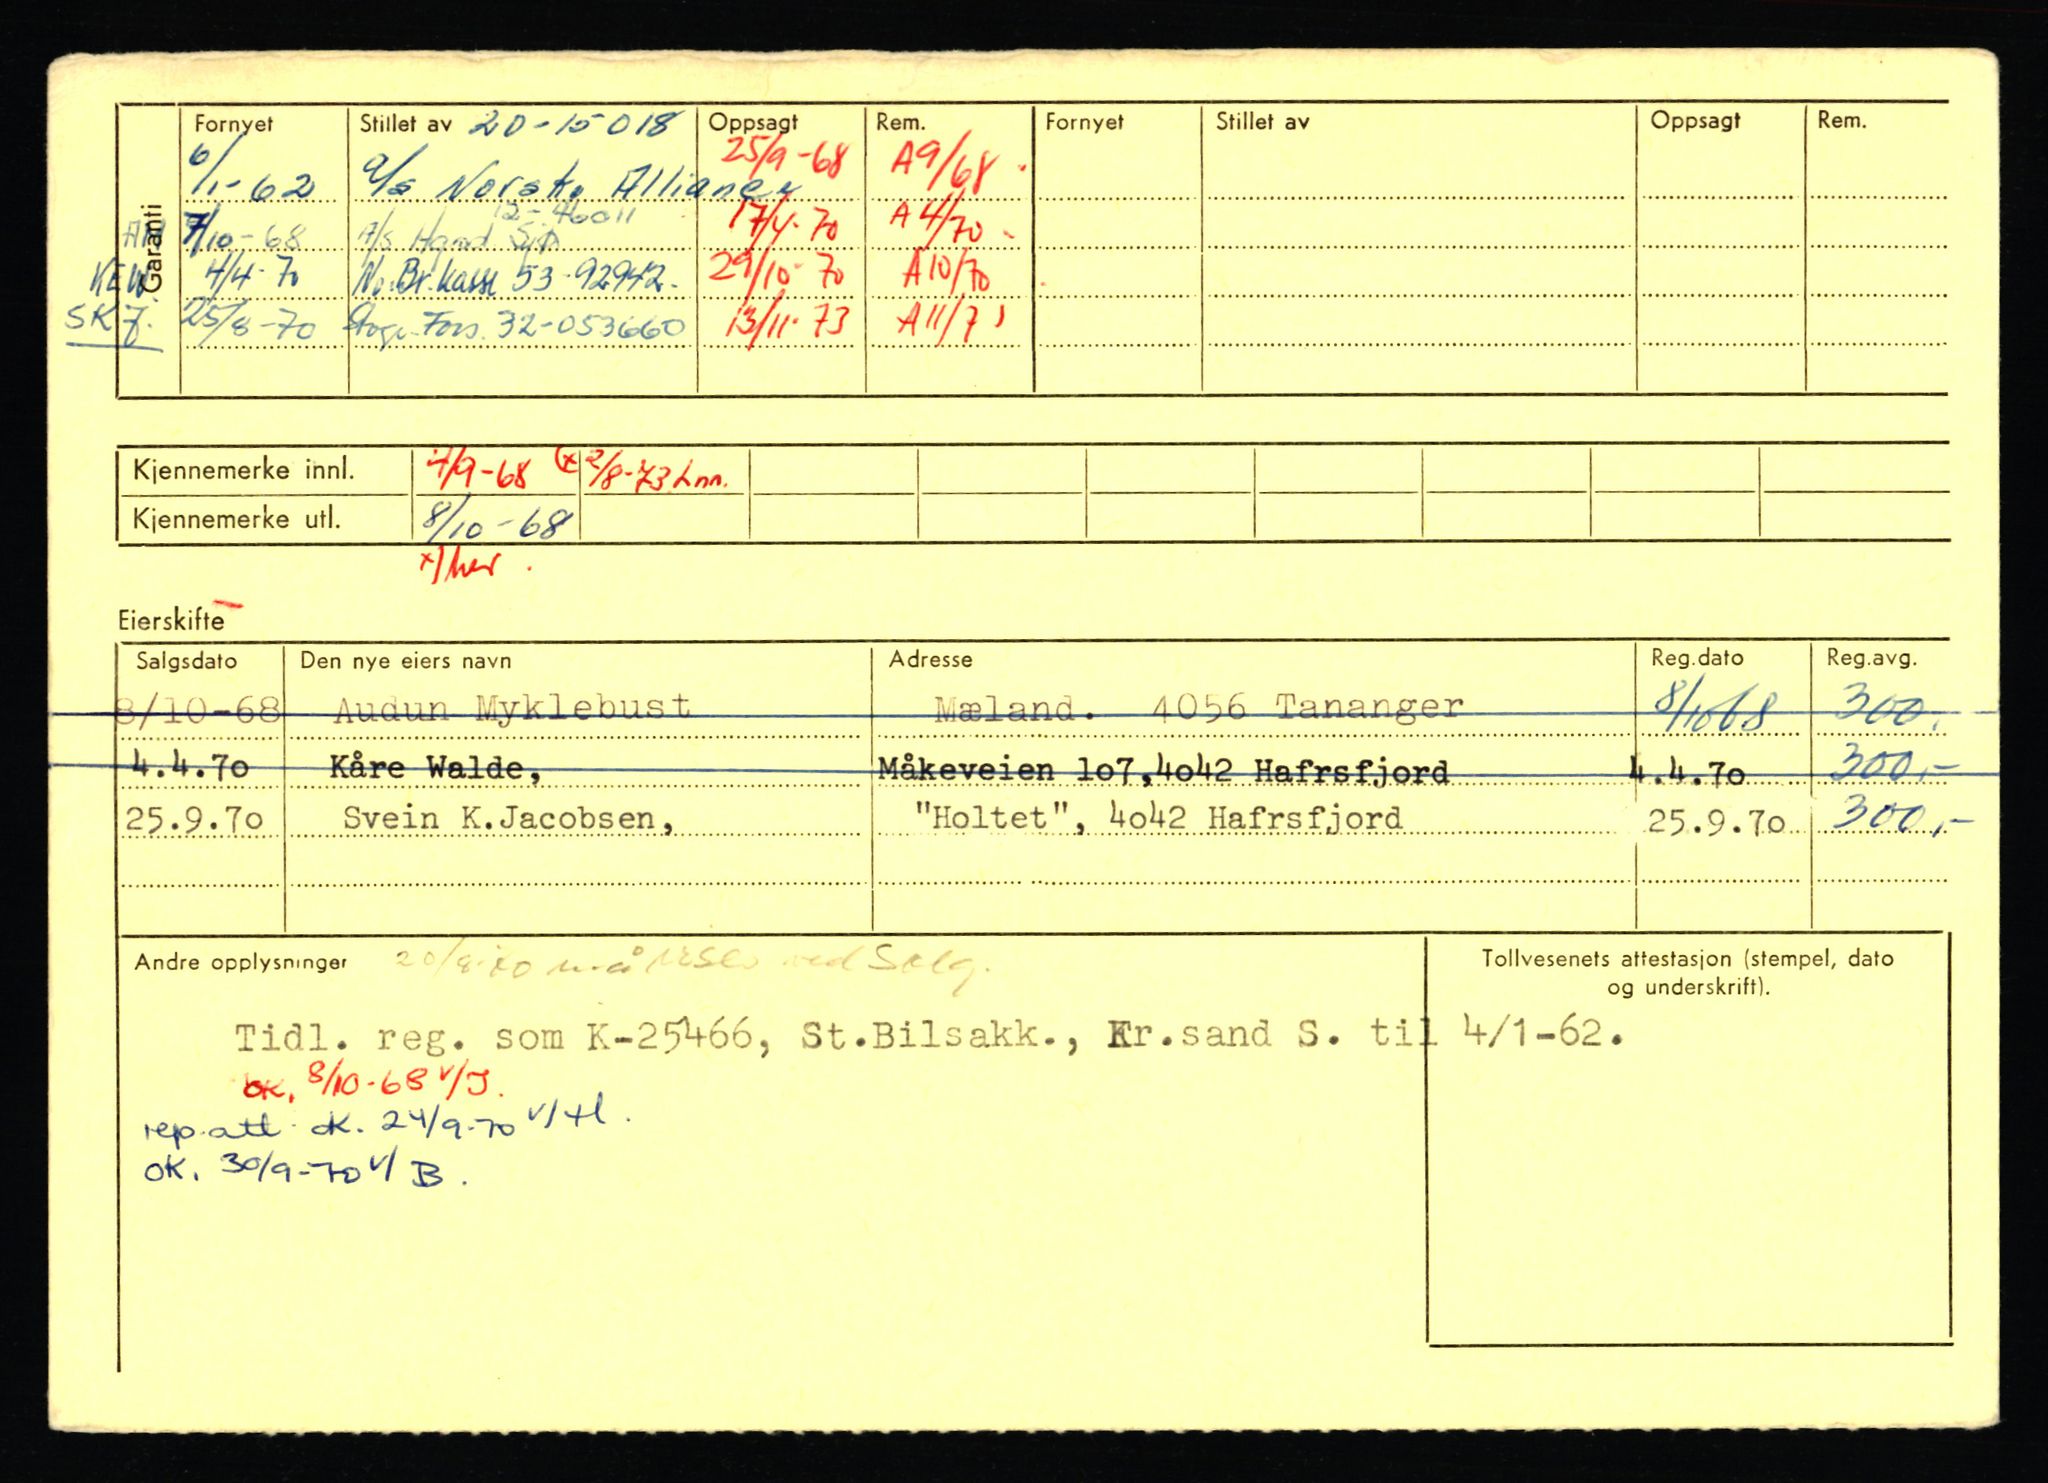 Garanti
Fornyet Stillet av 20-15018 Oppsagt Rem. Fornyet Stillet av Oppsagt Rem.
6/1-62 a/s Norske Alliance 25/9-68 A9/68
12-46011
7/10-68 A/S 17/4-70 A4/70
KEW. 4/4-70 No.Br.kasse 53-92942. 29/10-70 A10/70
SKJ. 25/8-70 Fors. 32-053660 13/11-73 A11/73
Kjennemerke innl. 4/9-68 (x 2/8-73 Lnn.
Kjennemerke utl. 8/10-68
x) her.
Eierskifte
Salgsdato Den nye eiers navn Adresse Reg.dato Reg.avg.
8/10-68 Audun Myklebust Mæland. 4056 Tananger 8/10 68 300,-
4.4.70 Kåre Walde, Måkeveien 107,4042 Hafrsfjord 4.4.70 300,-
25.9.70 Svein K.Jacobsen, "Holtet", 4042 Hafrsfjord 25.9.70 300,-
Andre opplysninger ved Salg.
Tollvesenets attestasjon (stempel, dato
og underskrift).
Tidl. reg. som K-25466, St.Bilsakk., Kr.sand S. til 4/1-62.
ok. 8/10-68 v/J.
rep.att. ok. 24/9-70 v/
ok. 30/9-70 v/ B.